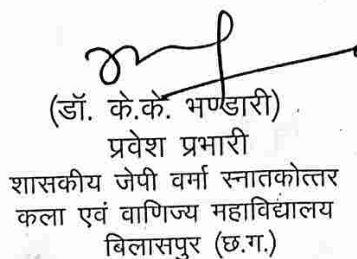 (डॉ. के.के. भण्डारी)
प्रवेश प्रभारी
शासकीय जेपी वर्मा स्नातकोत्तर
कला एवं वाणिज्य महाविद्यालय
बिलासपुर (छ.ग.)